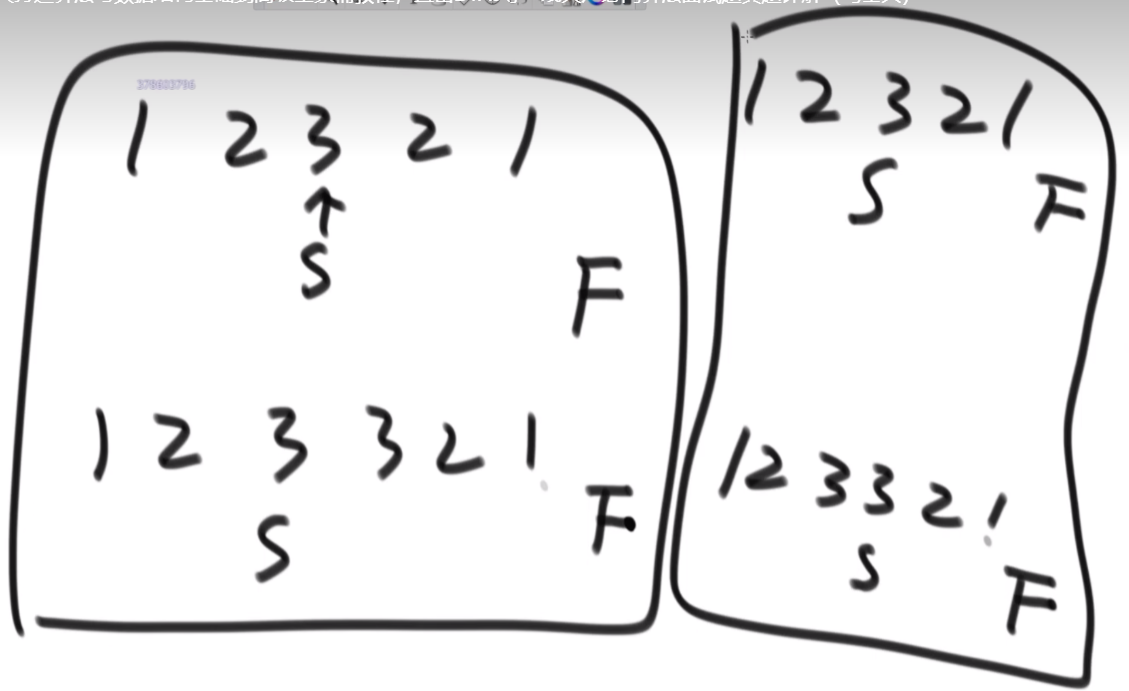 378803796
1 2 3 2 1
↑
S
F
1 2 3 3 2 1
S
F
1 2 3 2 1
S
F
1 2 3 3 2 1
S
F